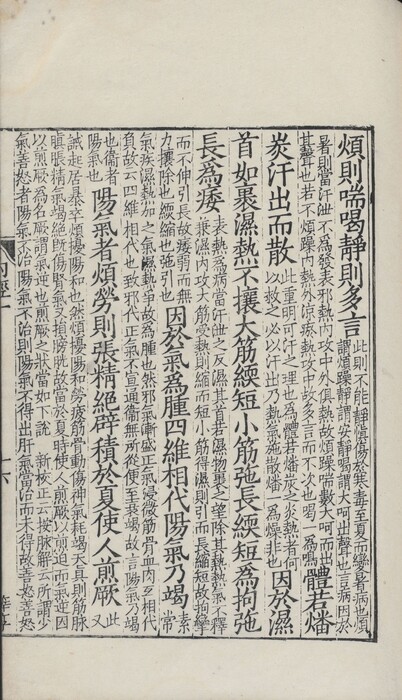 煩則喘喝靜則多言此則不能靜慎傷於寒毒至夏而變暑病也煩
謂煩躁靜謂安靜喝謂大呵出聲也言病因於
暑則當汗泄不為發表邪熱內攻中外俱熱故煩躁喘數大呵而出
其聲也若不煩躁內熱外涼瘀熱攻中故多言而不次也喝一為鳴體若燔
炭汗出而散此重明可汗之理也為體若燔炭之炎熱者何
以救之必以汗出乃熱氣施散燔一為燥非也因於濕
首如裹濕熱不攘大筋緛短小筋弛長緛短為拘弛
長為痿表熱為病當汗泄之反濕其首若濕物裹之望除其熱熱氣不釋
兼濕內攻大筋受熱則縮而短小筋得濕則引而長縮短故拘攣
而不伸引長故痿弱而無
力攘除也緛縮也弛引也因於氣為腫四維相代陽氣乃竭素
常
氣疾濕熱加之氣濕熱爭故為腫也然邪氣漸盛正氣浸微筋骨血肉互相代
負故云四維相代也致邪代正氣不宣通衛無所從便至衰竭故言陽氣乃竭
也衛者
陽氣也陽氣者煩勞則張精絕辟積於夏使人煎厥此
又
誡起居暴卒煩擾陽和也然煩擾陽和勞疲筋骨動傷神氣耗竭天真則筋脉
䐜脹精氣竭絕既傷腎氣又損膀胱故當於夏時使人煎厥以煎迫而氣逆因
以煎厥為名厥謂氣逆也煎厥之狀當如下說 新校正云按脉解云所謂少
氣善怒者陽氣不治陽氣不治則陽氣不得出肝氣當治而未得故善怒善怒
內經一
十六